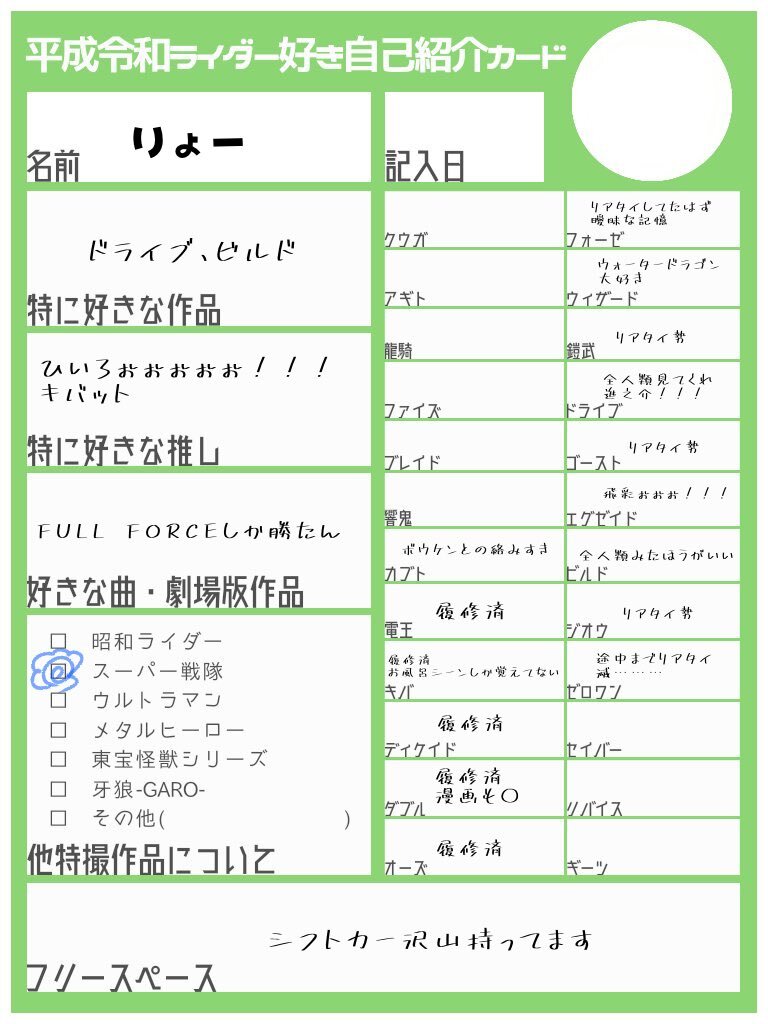 平成令和ライダー好き自己紹介カード
りょー
名前
記入日
ドライブ、ビルド
特に好きな作品
ひいろぉぉぉぉぉ！！！
キバット
特に好きな推し
FULL FORCEしか勝たん
好きな曲・劇場版作品
□ 昭和ライダー
☑ スーパー戦隊
□ ウルトラマン
□ メタルヒーロー
□ 東宝怪獣シリーズ
□ 牙狼-GARO-
□ その他( )
他特撮作品について
クウガ
アギト
龍騎
ファイズ
ブレイド
響鬼
ボウケンとの絡みすき
カブト
履修済
電王
履修済
お風呂シーンしか覚えてない
キバ
履修済
ディケイド
履修済
漫画も〇
ダブル
履修済
オーズ
リアタイしてたはず
曖昧な記憶
フォーゼ
ウォータードラゴン
大好き
ウィザード
リアタイ勢
鎧武
全人類見てくれ
進之介！！！
ドライブ
リアタイ勢
ゴースト
飛彩おぉぉ！！！
エグゼイド
全人類みたほうがいい
ビルド
リアタイ勢
ジオウ
途中までリアタイ
滅………
ゼロワン
セイバー
リバイス
ギーツ
シフトカー沢山持ってます
フリースペース